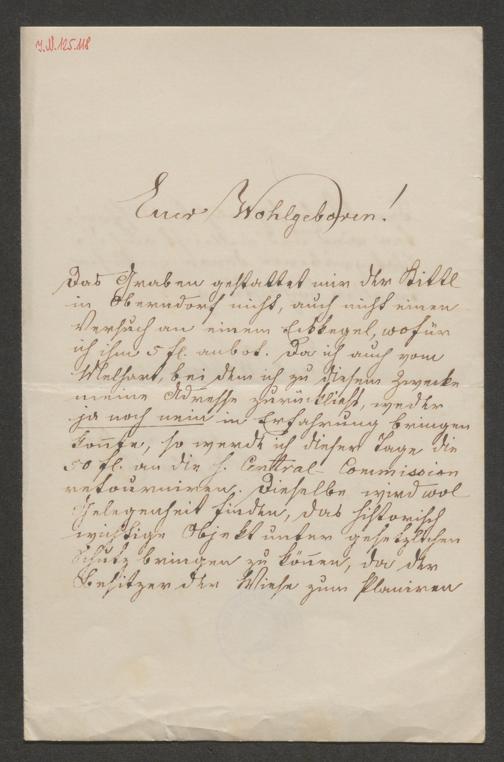 J.N. 125.118
Euer Wohlgeboren!
Das Graben gestattet mir der Bittl
in Oberndorf nicht, auch nicht einen
Versuch an einem Erdkegel, wofür
ich ihm 5 fl. anbot. Da ich auch vom
bei dem ich zu diesem Zwecke
meine Adresse zurückließ, weder
ja noch nein in Erfahrung bringen
konnte, so werde ich dieser Tage die
50 fl. an die h. Central-Commission
retourniren. Dieselbe wird wol
Gelegenheit finden, das historisch
wichtige Objekt unter gesetzlichen
Schutz bringen zu können, da der
Besitzer der Wiese zum Planiren